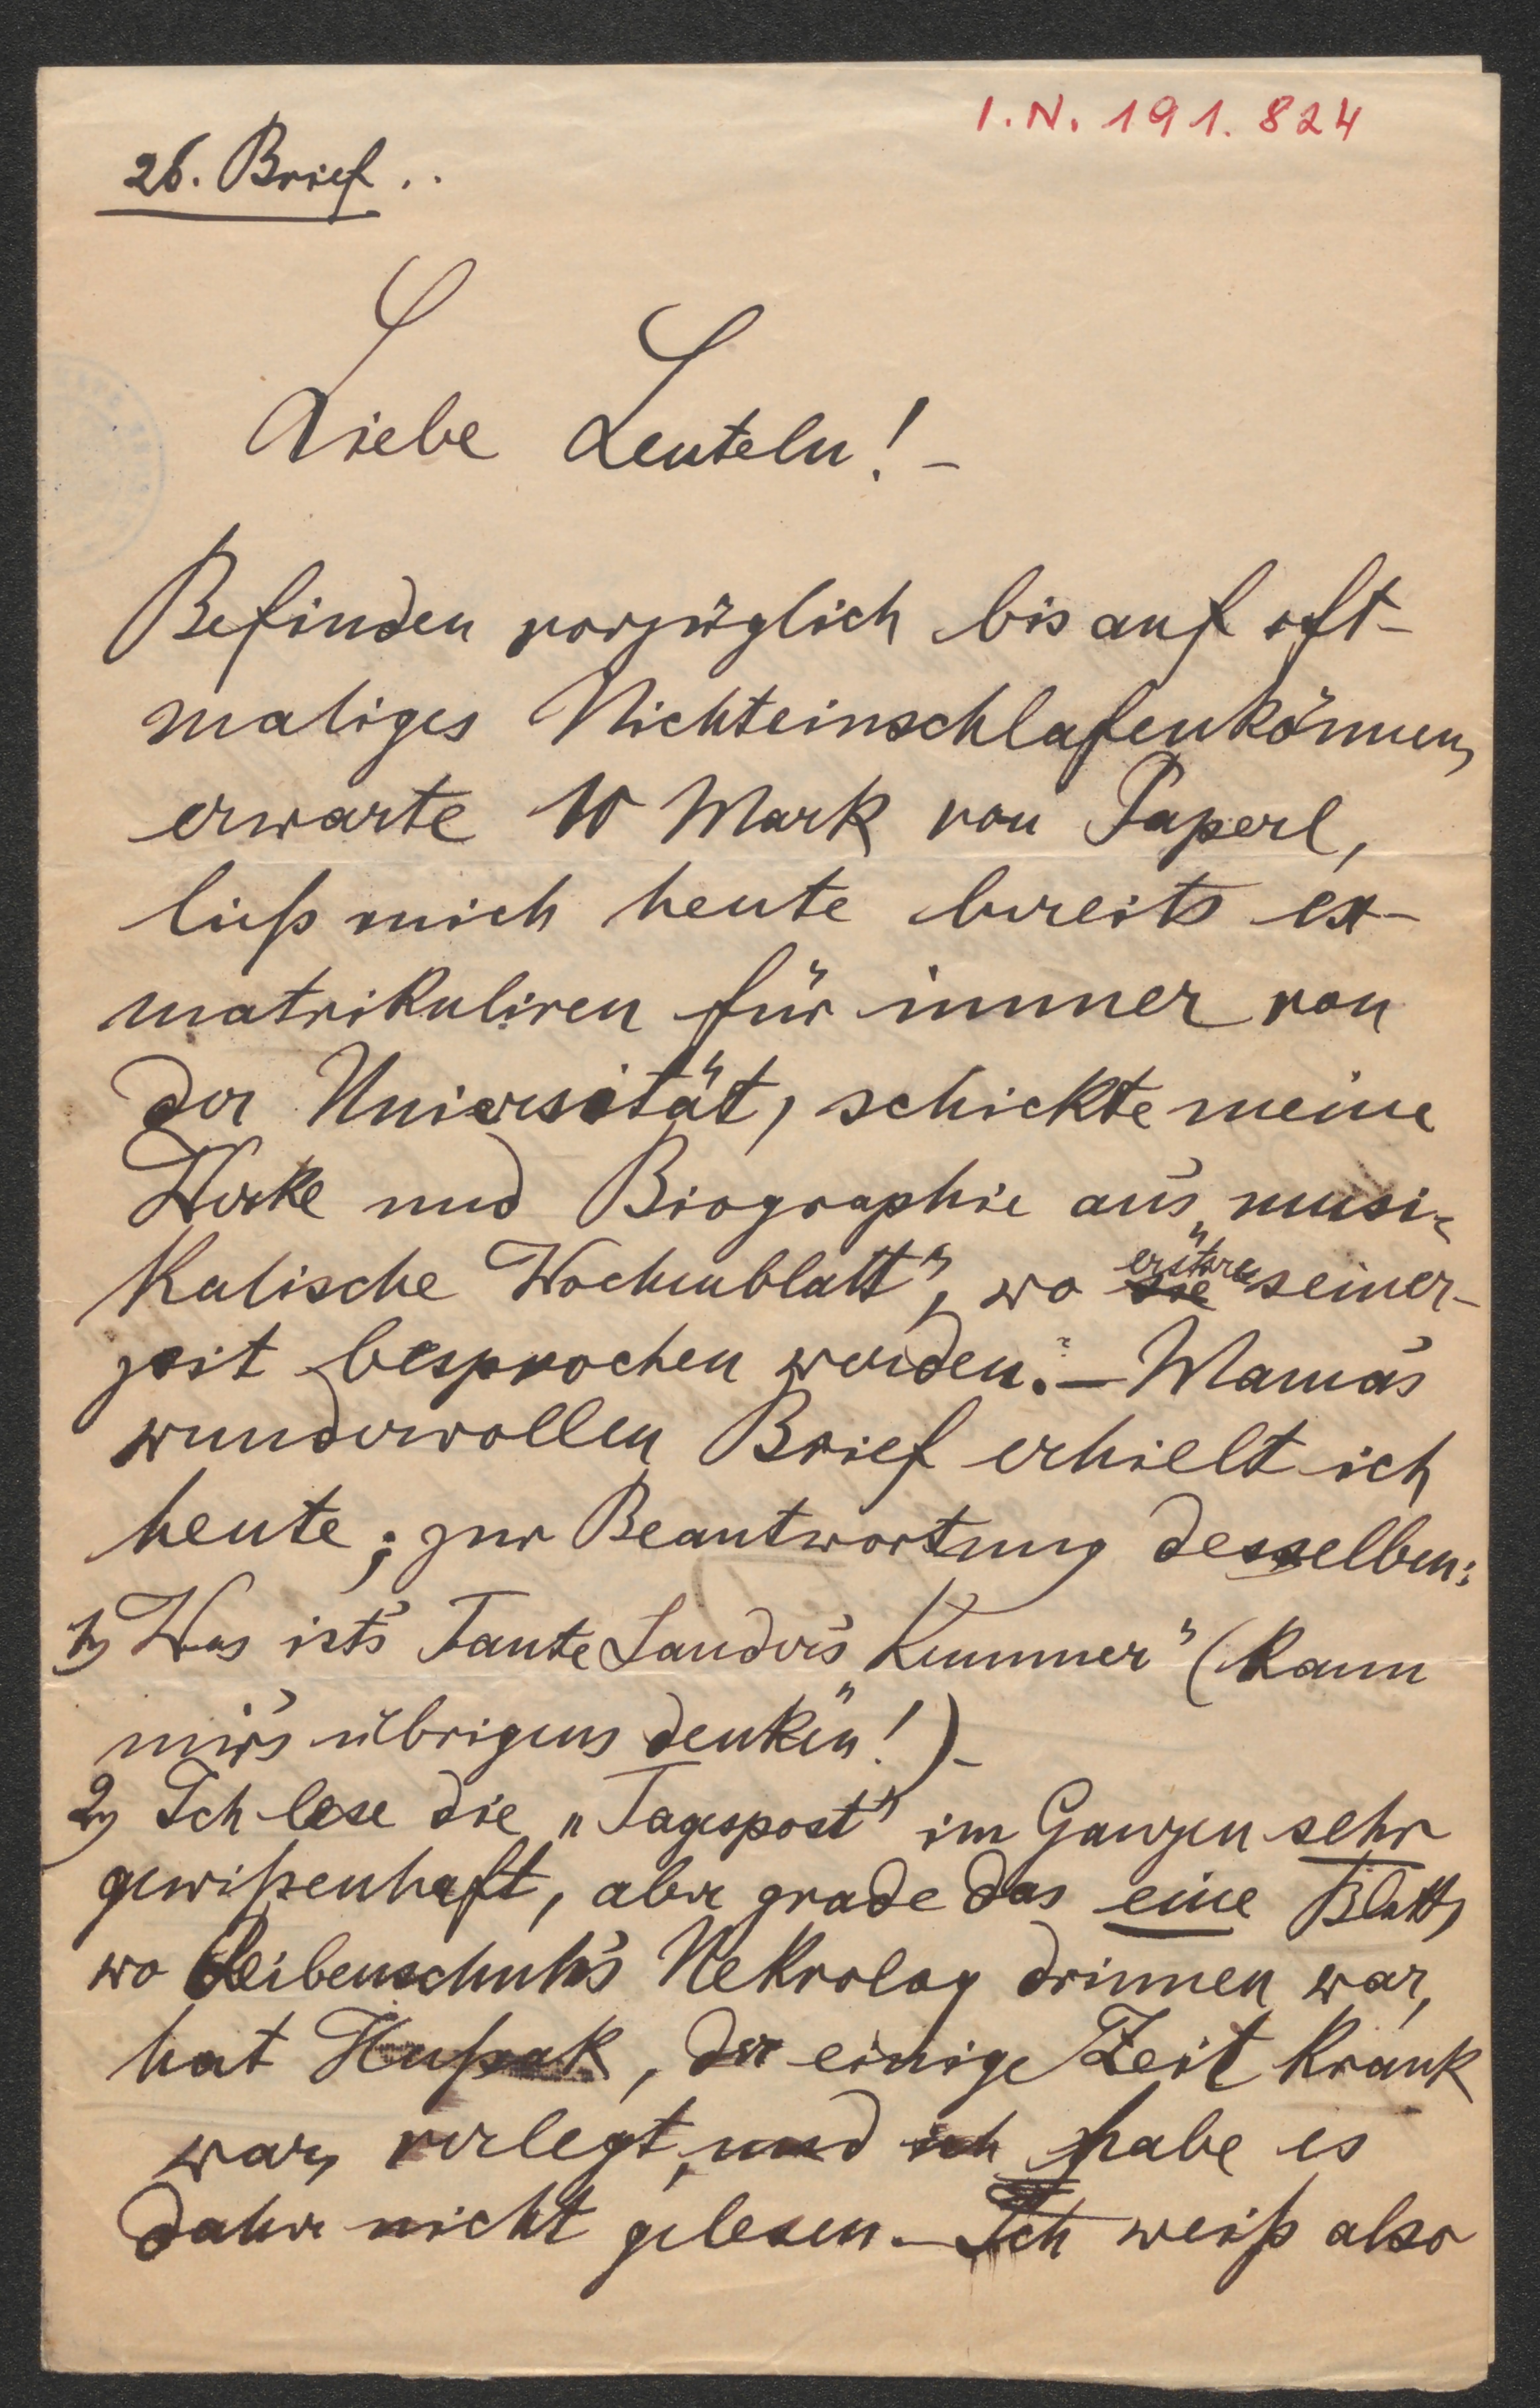 I.N. 191.824
26. Brief..
Liebe Leuteln! –
Befinden vorzüglich bis auf oft-
maliges Nichteinschlafenkönnen,
erwarte 10 Mark von Paperl,
ließ mich heute bereits ex-
matrikuliren für immer von
der Universität, schickte meine
Werke und Biographie an's „musi-
kalische Wochenblatt", wo erstere seiner-
zeit besprochen werden. – Mama's
wundervollen Brief erhielt ich
heute; zur Beantwortung desselben:
1) Was ist's Tante Sandor's „Kummer" (kann
mir's übrigens denken!) –
2) Ich lese die „Tagespost" im Ganzen sehr
gewißenhaft, aber grade das eine Blatt,
wo Leibenschuh's Nekrolog drinnen war,
hat Hußak, der einige Zeit krank
war, verlegt, und ich habe es
daher nicht gelesen. – Ich weiß also